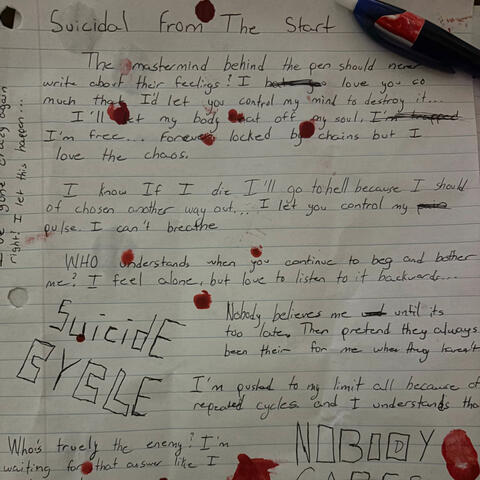 Suicidal From The Start
The mastermind behind the pen should never
write about their feelings? I love you so
much that I'd let you control my mind to destroy it...
I'll let my body eat off my soul. I'm trapped
I'm free... Forever locked by chains but I
love the chaos.
I know If I die I'll go to hell because I should
of chosen another way out... I let you control my
pulse. I can't breathe
WHO understands when you continue to beg and bother
me? I feel alone, but love to listen to it backwards...
SuicidE
CYCLE
Nobody believes me until its
too late. Then pretend they always
been their for me when they haven't
I'm pushed to my limit all because of
repeated cycles and I understands tha
Who's truely the enemy? I'm
waiting for that answer like I
NOBODY
CARES
gone crazy again
right? I let this happen...